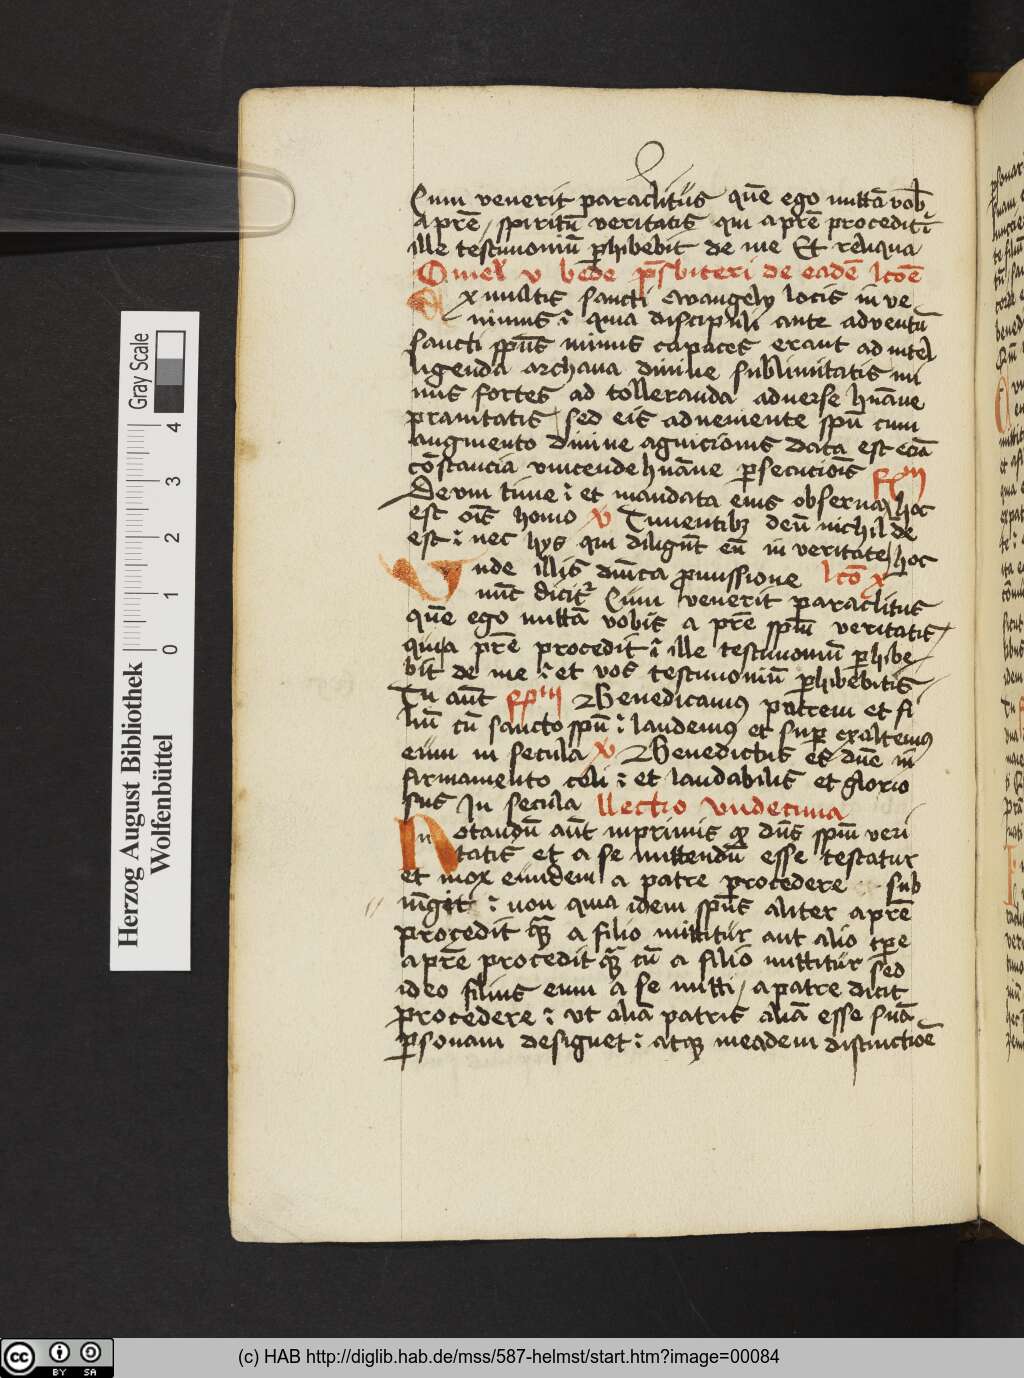 Cum venerit paraclitus quē ego mittā vob̄
a pr̄e / spiritū veritatis qui a pr̄e procedit :
ille testimoniū ꝑhibebit de me Et reliqua
Omel v bede pr̄sbiteri de eadē lcōe
Ex multis sancti ewangelÿ locis inve
nimus : quia discipuli ante adventū
sancti spūs minus capaces erant ad intel
ligenda archana divine sublimitatis mi
nus fortes ad tolleranda adverse hūane
pravitatis / sed eis adveniente spū cum
augmento divine agnicionis data est eciā
cōstancia vincende hūane ꝑsecutiōis
Deum time : et mandata eius observa / hoc
est oīs homo v Timentibȝ deū nichil de
est : nec hÿs qui diligūt eū in veritate / hoc
Vnde illis dnīca promissione lcō x
nūc dicitr Cum venerit paraclitus
quē ego mittā vobis a pr̄e spm̄ veritatis /
quia pr̄e procedit : ille testimoniū ꝑhibe
bit de me : et vos testimoniū ꝑhibebitis
Tu aūt Benedicamus patrem et fi
liū cū sancto spū : laudemus et super exaltemus
eum in secula v Benedictus es dn̄e in
firmamento celi : et laudabilis et glorio
sus In secula llectio vndecima
Notandū aūt inprimis qͥ dn̄s spm̄ veri
tatis et a se mittendū esse testatur
et mox eundem a patre procedere sub
iūgit : non quia idem spūs aliter a pr̄e
procedit qͣȝ a filio mittitur aut alio tpe
a pr̄e procedit qͣȝ cū a filio mittitur sed
ideo filius eum a se mitti / a patre dicit
procedere : ut aliā patris aliā esse suā
ꝑsonam designet : atqȝ in eadem distinctiōe
Herzog August Bibliothek
Wolfenbüttel
Gray Scale
0 1 2 3 4
cc BY SA
(c) HAB http://diglib.hab.de/mss/587-helmst/start.htm?image=00084